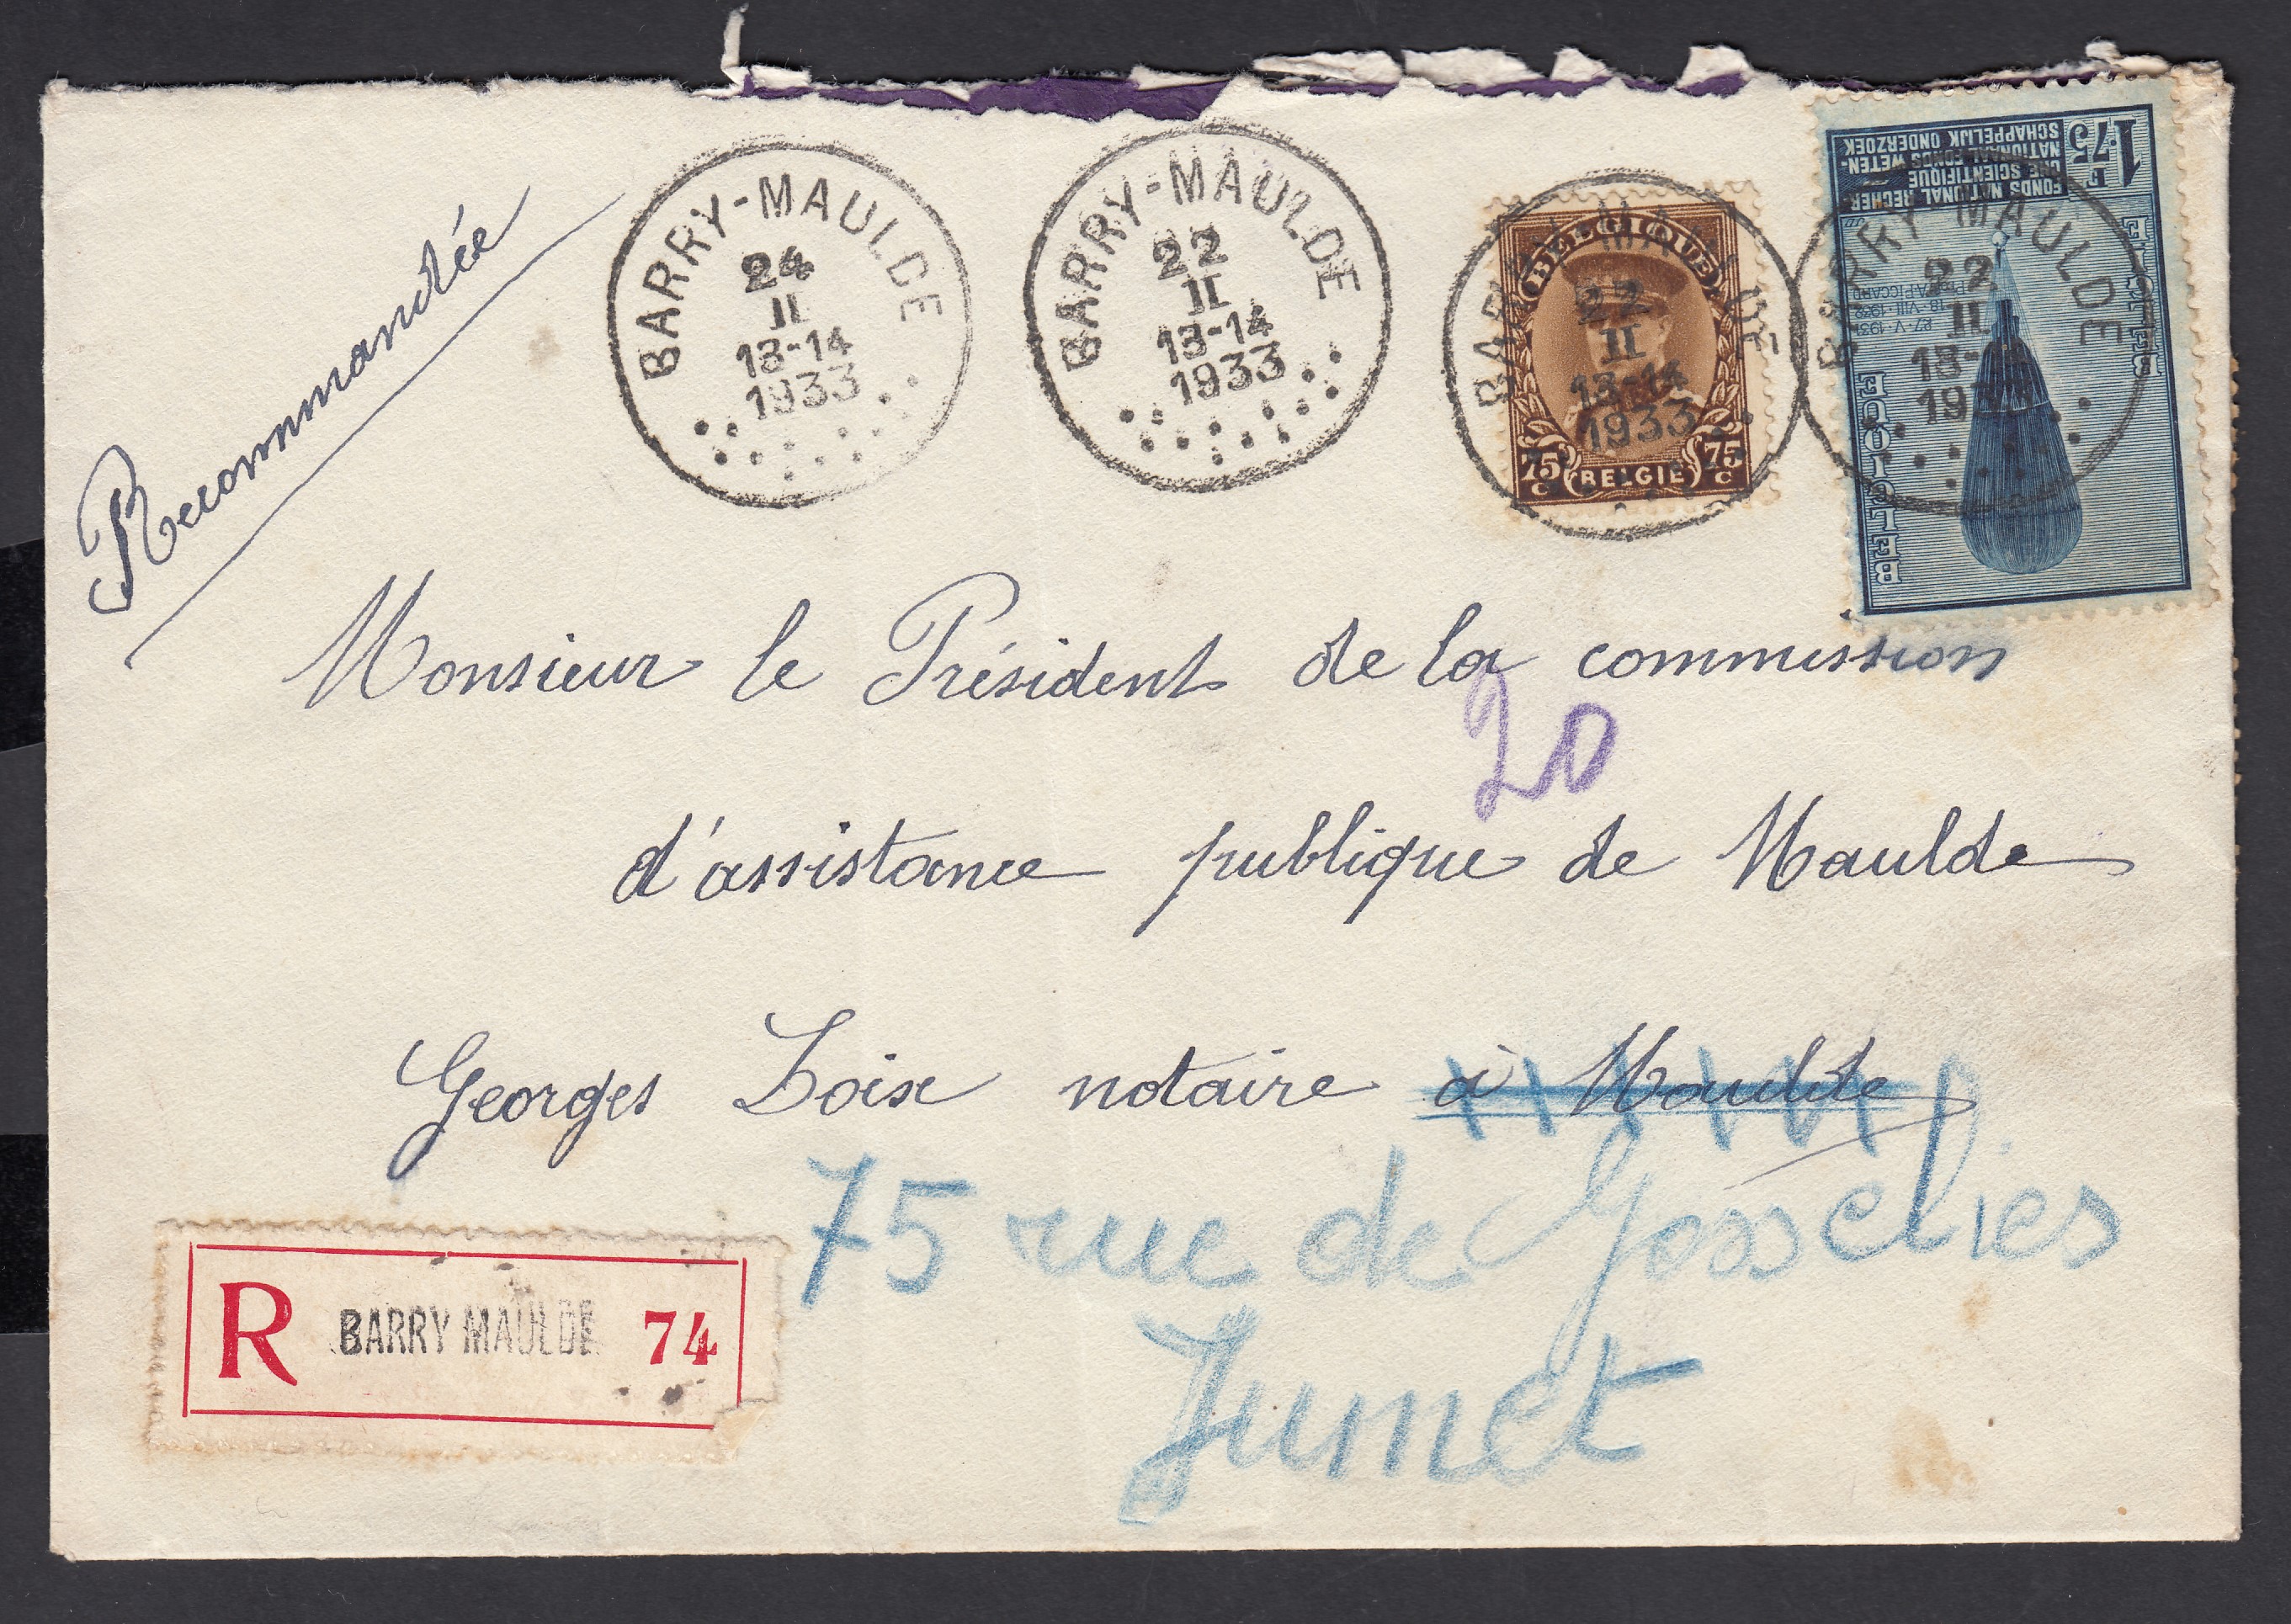 Recommandée
BARRY-MAULDE
24
II
13-14
1933
BARRY-MAULDE
22
II
13-14
1933
BELGIQUE
75 c BELGIE 75 c
BARRY-MAULDE
22
II
13-14
1933
1F75
FONDS NATIONAL RECHER-
CHE SCIENTIFIQUE
NATIONAAL FONDS WETEN-
SCHAPPELIJK ONDERZOEK
BELGIE
BELGIQUE
BARRY MAULDE
22
II
Monsieur le Président de la commission
20
d'assistance publique de Maulde
Georges Loix notaire à Maulde
75 rue de Gosselies
Jumet
R BARRY MAULDE 74